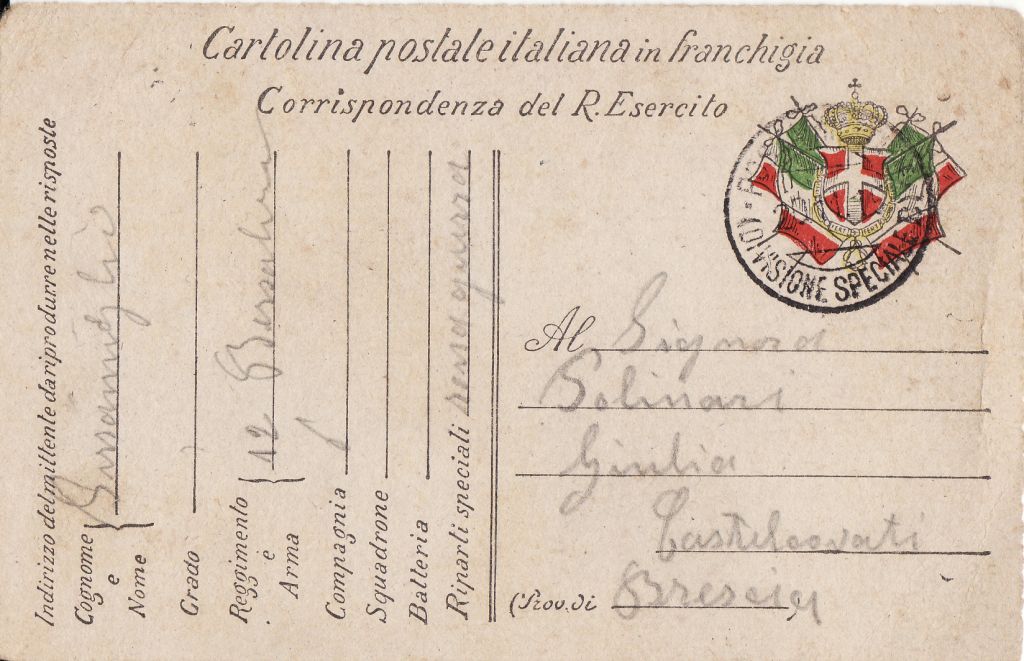 Cartolina postale italiana in franchigia
Corrispondenza del R. Esercito
Indirizzo del mittente da riprodurre nelle risposte
Cognome e Nome
Grado
Reggimento e Arma 12
Compagnia
Squadrone
Batteria
Riparti speciali zona guerra
DIVISIONE SPECIALE
Al Signora
Polinari
Giulia
Castelcovati
(Prov. di Brescia)